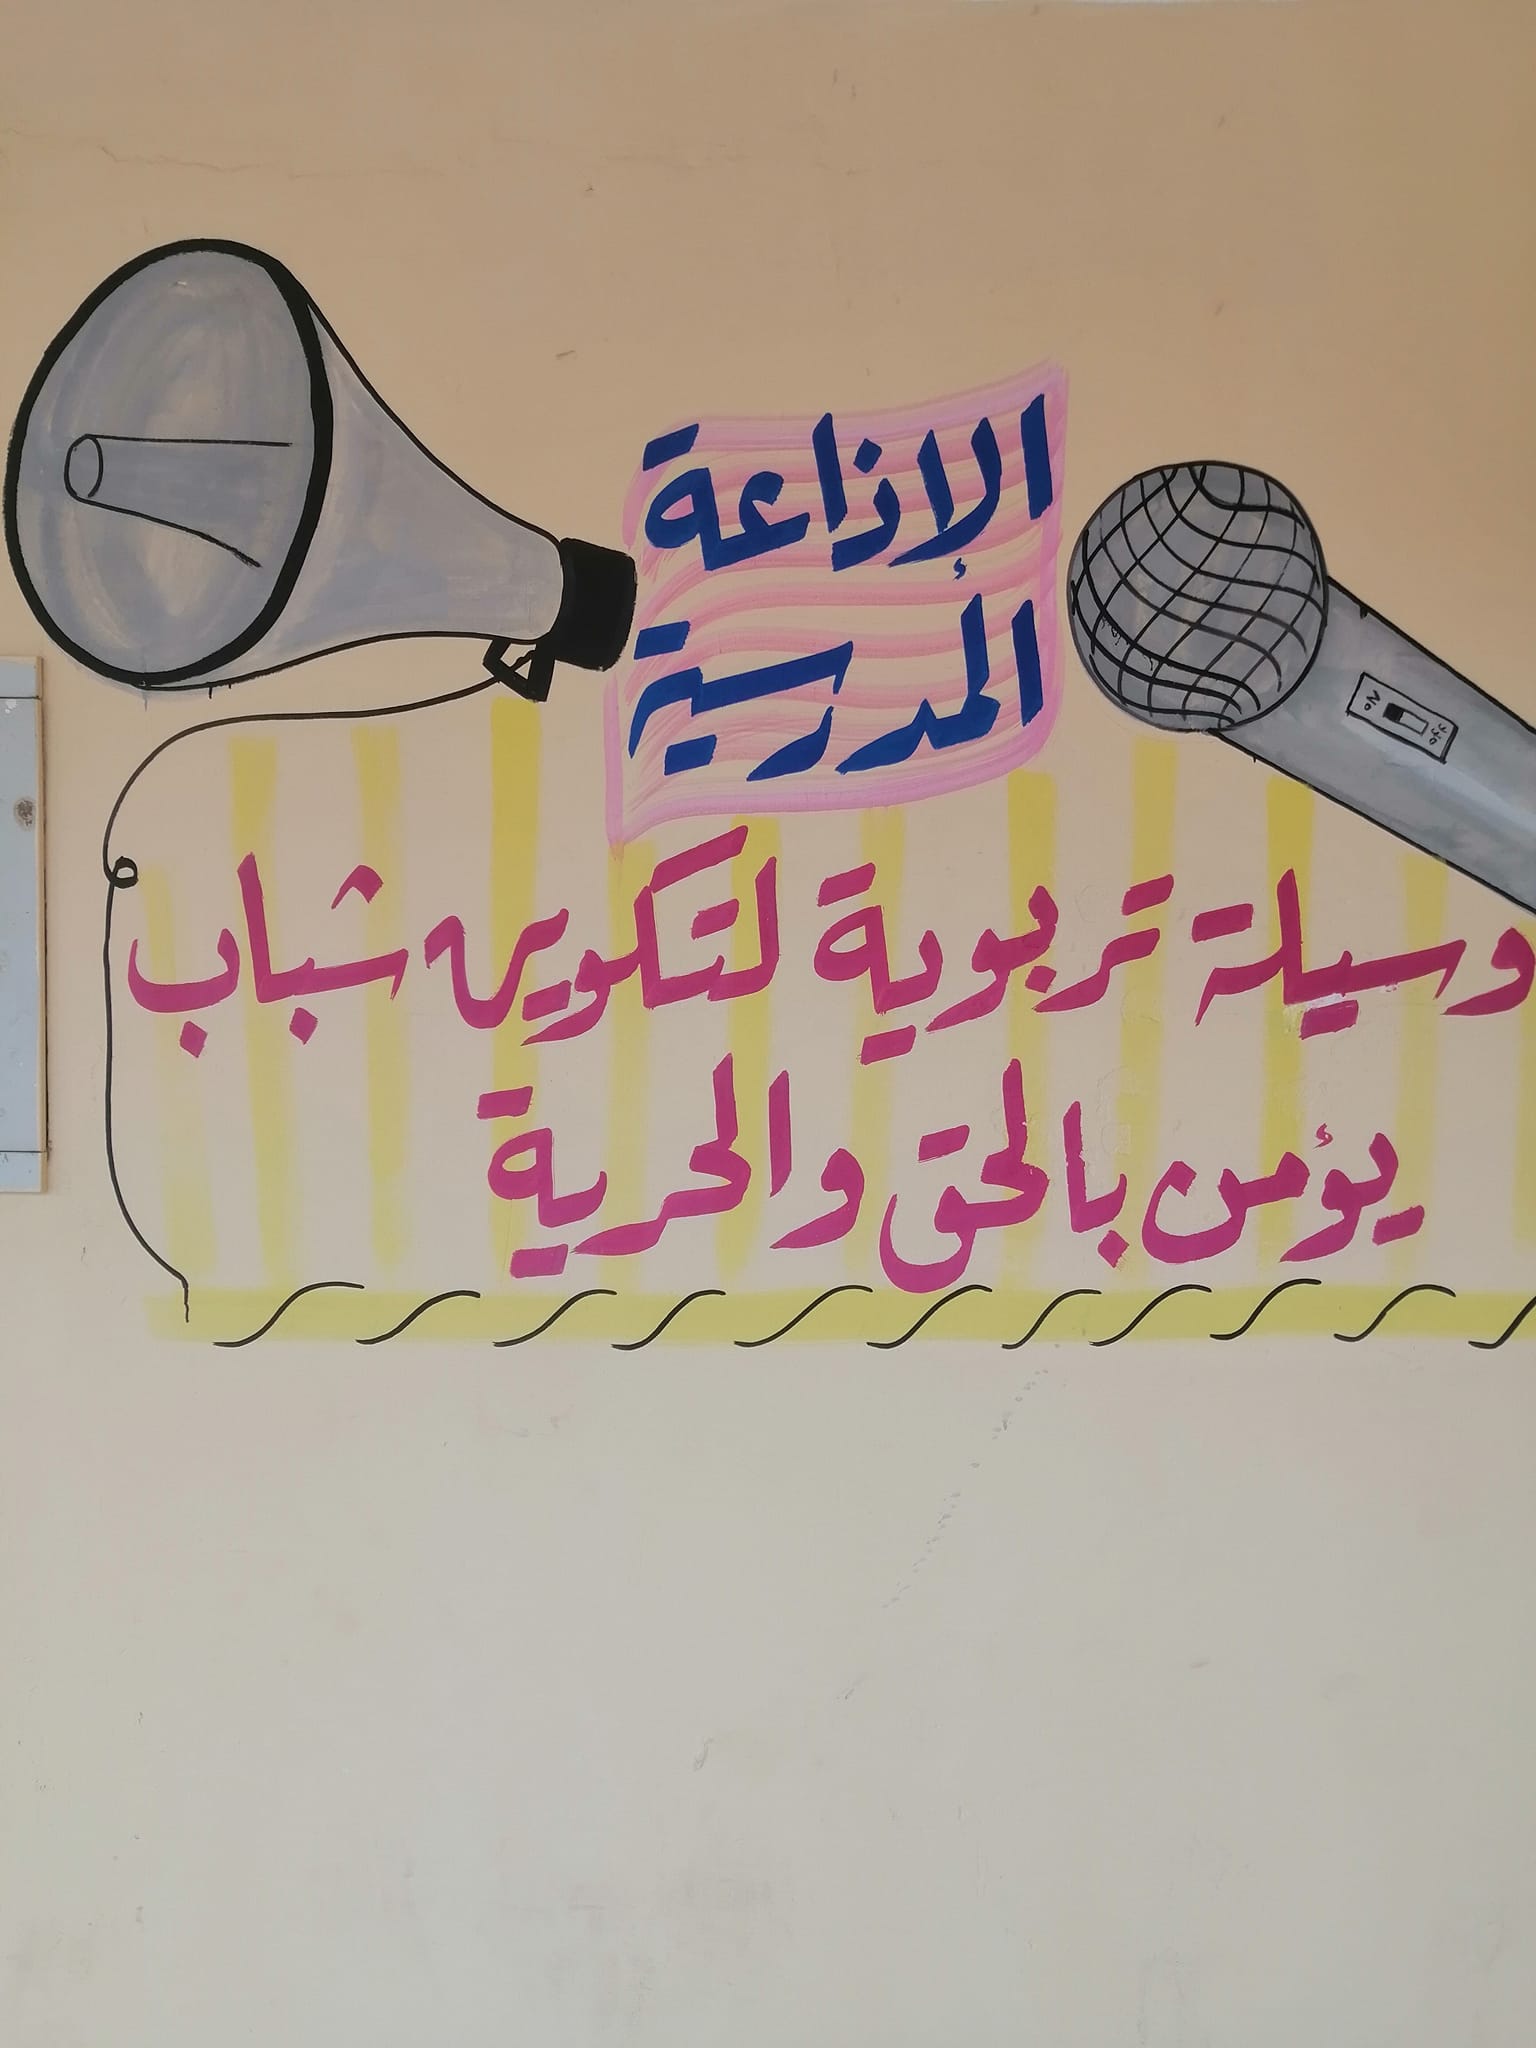 الإذاعة
المدرسية
وسيلة تربوية لتكوين شباب
يؤمن بالحق والحرية